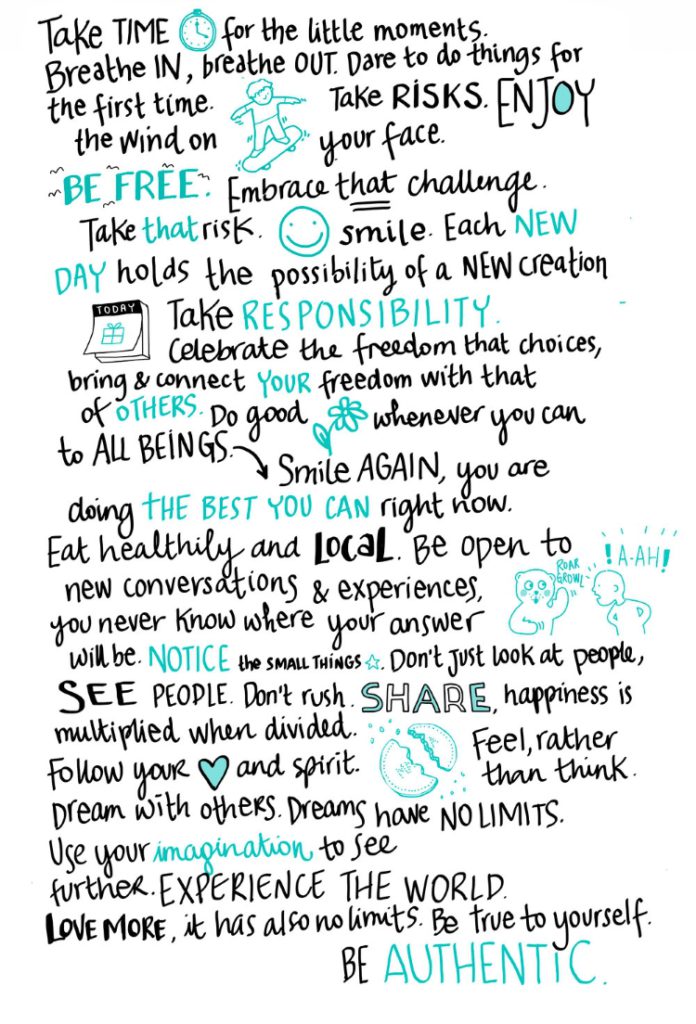 Take TIME for the little moments.
Breathe IN, breathe OUT. Dare to do things for
the first time. Take RISKS. ENJOY
the wind on your face.
BE FREE. Embrace that challenge.
Take that risk. smile. Each NEW
DAY holds the possibility of a NEW creation
TODAY
Take RESPONSIBILITY.
Celebrate the freedom that choices,
bring & connect YOUR freedom with that
of OTHERS. Do good whenever you can
to ALL BEINGS.
Smile AGAIN, you are
doing THE BEST YOU CAN right now.
Eat healthily and LOCAL. Be open to
new conversations & experiences,
ROAR
GROWL
! A-AH!
you never know where your answer
will be. NOTICE the SMALL THINGS. Don't just look at people,
SEE PEOPLE. Don't rush. SHARE, happiness is
multiplied when divided.
Feel, rather
than think.
Follow your and spirit.
Dream with others. Dreams have NO LIMITS.
Use your imagination to see
further. EXPERIENCE THE WORLD.
LOVE MORE, it has also no limits. Be true to yourself.
BE AUTHENTIC.